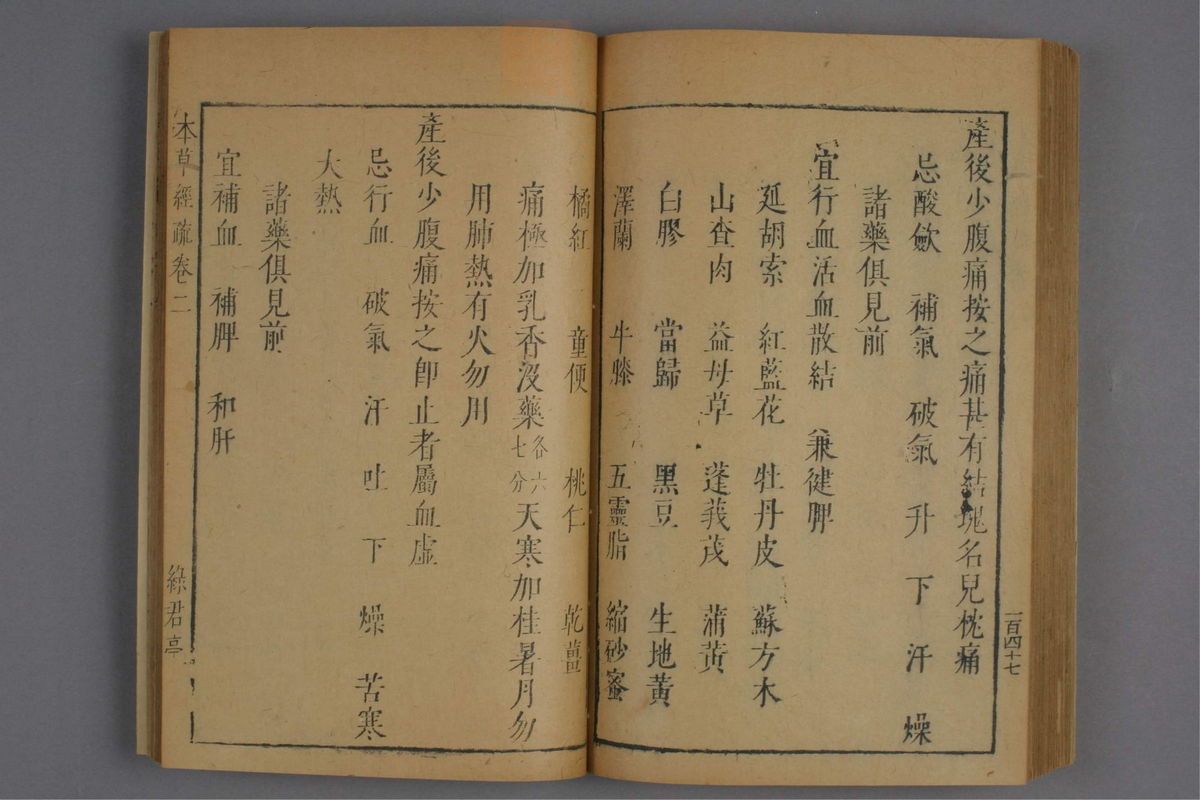 產後少腹痛按之痛甚有結塊名兒枕痛
忌酸歛　補氣　破氣　升　下　汗　燥
諸藥俱見前
宜行血活血散結　兼健脾
延胡索　紅藍花　牡丹皮　蘇方木
山查肉　益母草　蓬莪茂　蒲黃
白膠　當歸　黑豆　生地黃
澤蘭　牛膝　五靈脂　縮砂蜜
一百四十七
橘紅　童便　桃仁　乾薑
痛極加乳香沒藥各六七分天寒加桂暑月勿
用肺熱有火勿用
產後少腹痛按之即止者屬血虛
忌行血　破氣　汗　吐　下　燥　苦寒
大熱
諸藥俱見前
宜補血　補脾　和肝
本草經疏卷二　綠君亭